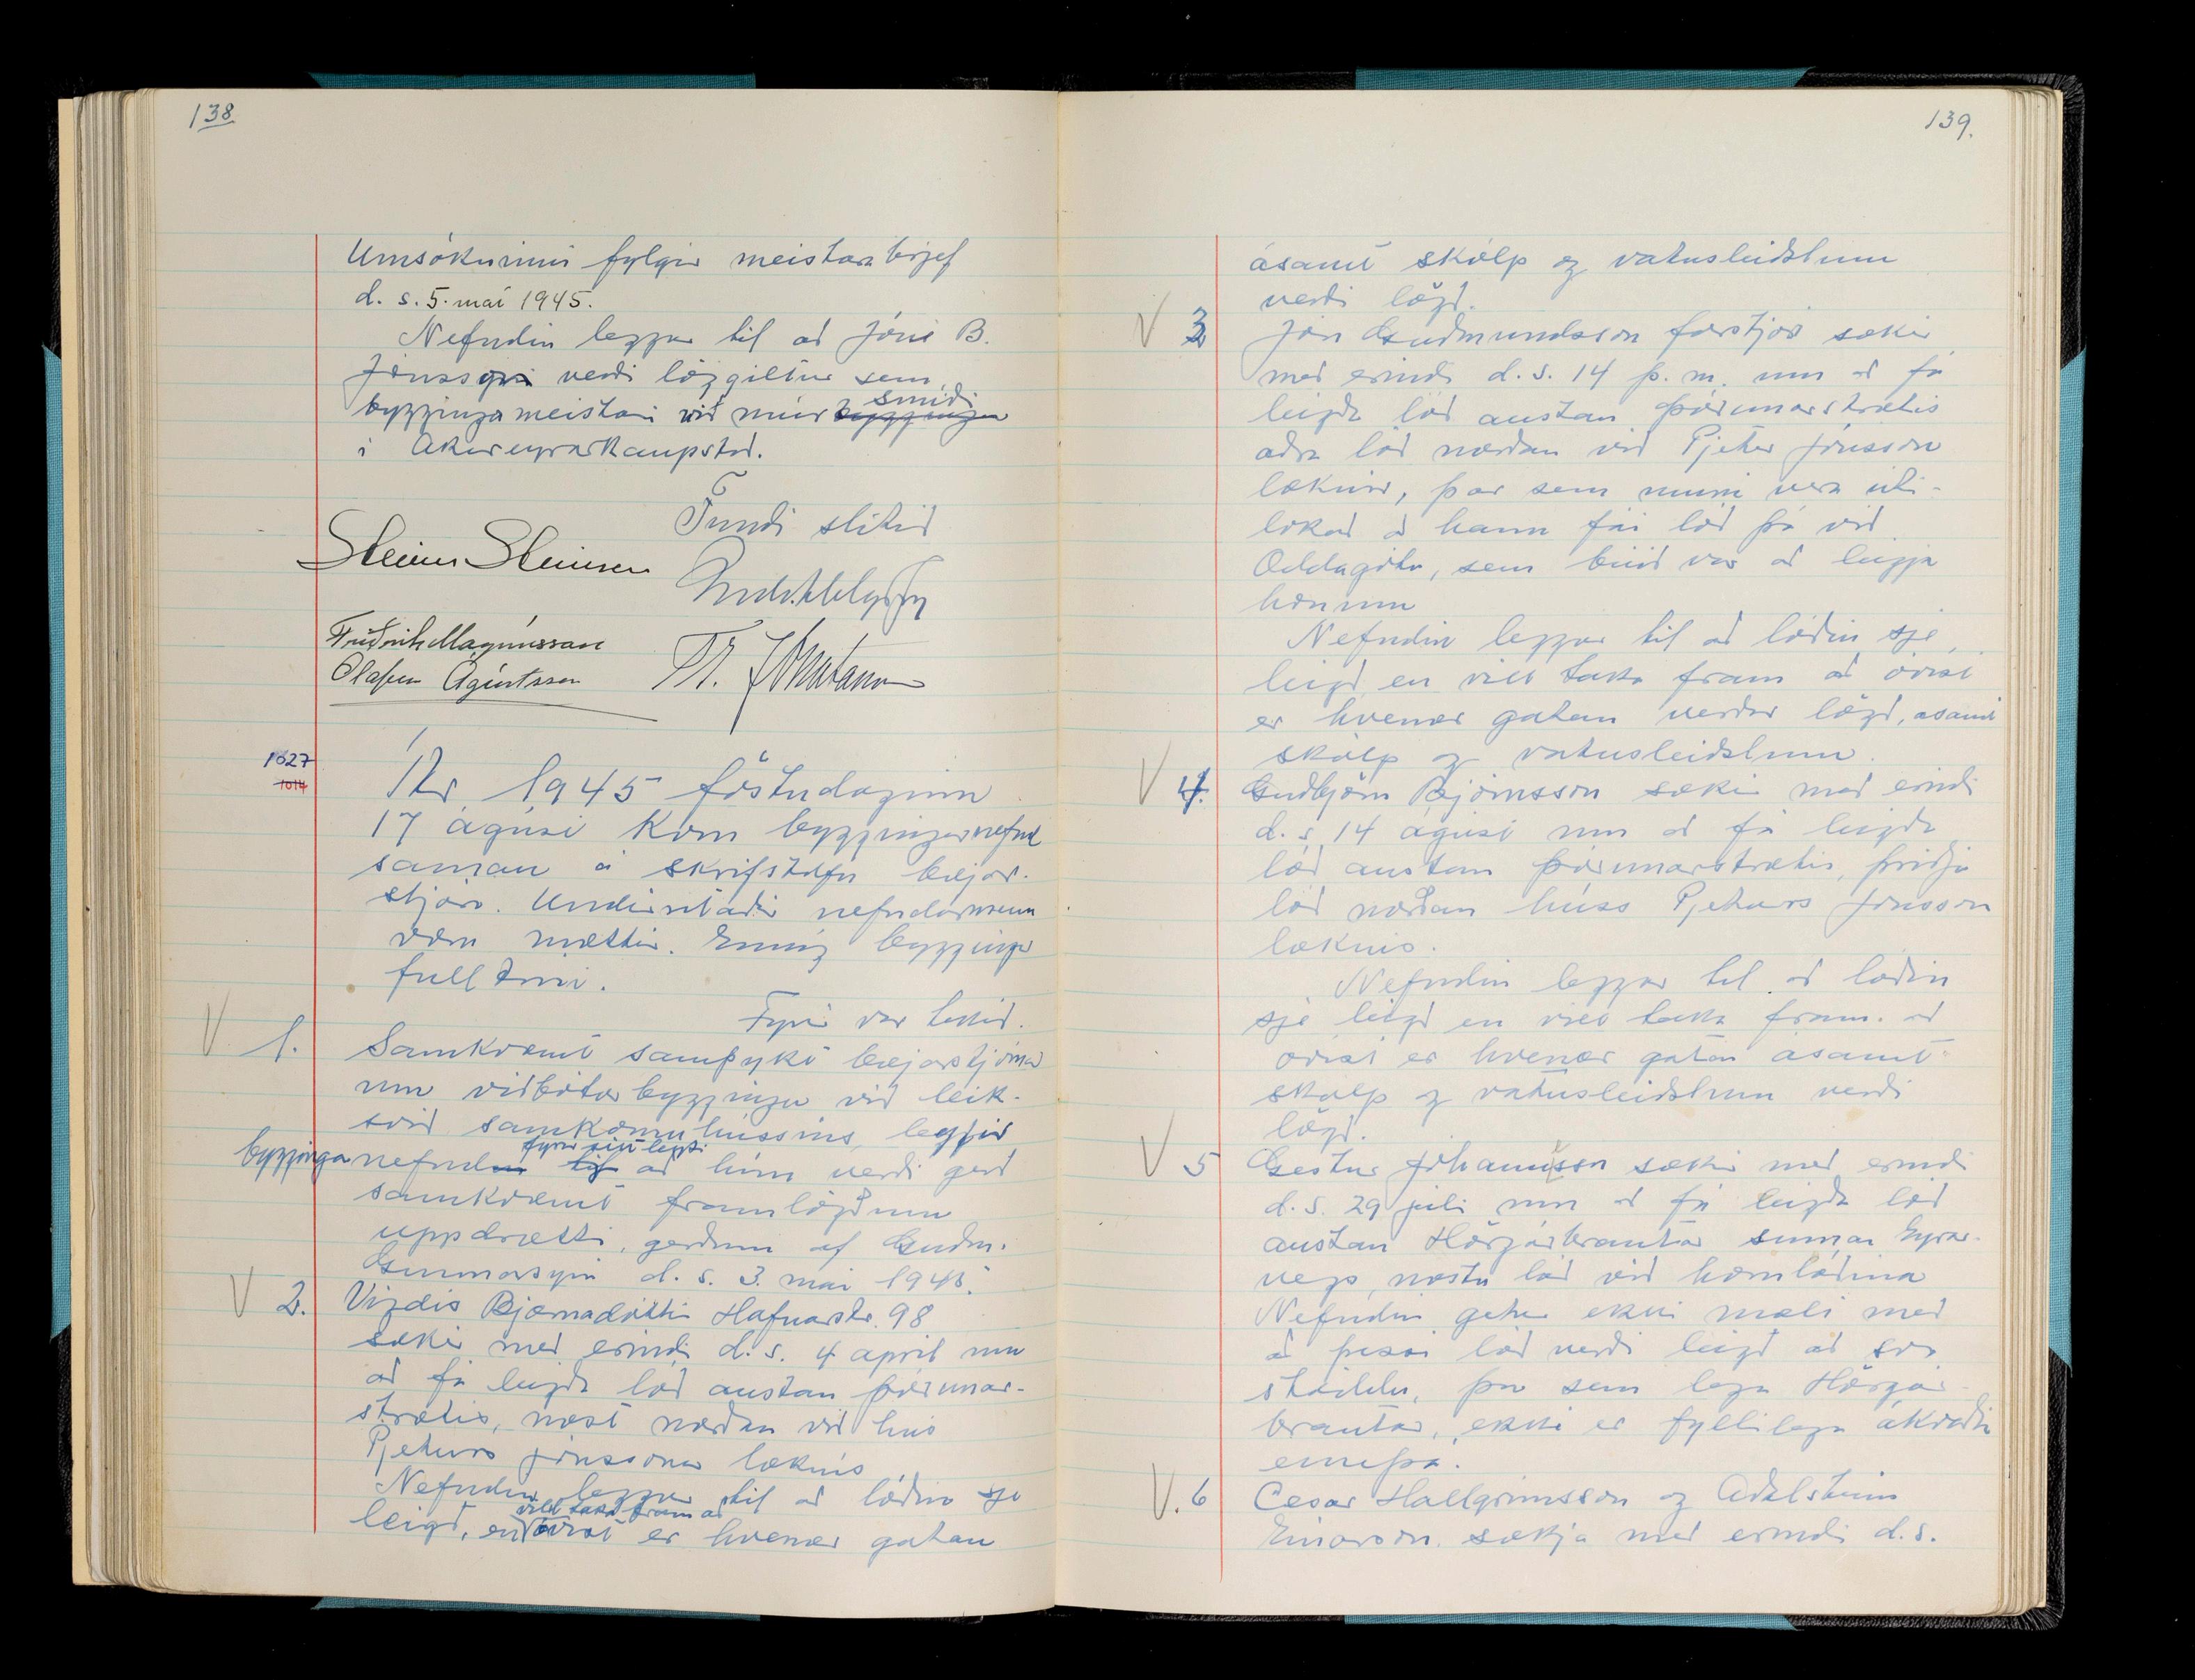 138
Umsókninni fylgir meistarabrjef
d. s. 5. maí 1945.
Nefndin leggur til að Jóni B.
Jónssyni verði löggiltur sem
byggingameistari við múrsmíði
í Akureyrarkaupstað.
Fundi slitið
Steinn Steinsen
Friðrik Magnússon
Olafur Ágústsson
1027
1014
Ár 1945 föstudaginn
17 ágúst kom byggingarnefnd
saman á skrifstofu bæjar-
stjóra. Undirritaðir nefndarmenn
voru mættir. Einnig bygginga
fulltrúi.
Fyrir var tekið.
V 1. Samkvæmt samþykt bæjarstjórnar
um viðbótarbyggingu við leik-
svið samkomuhússins leggur
bygginganefnd fyrir sitt leyti til að hún verði gerð
samkvæmt framlögðum
uppdrætti, gerðum af Guðm.
Gunnarssyni d. s. 3. maí 1945.
V 2. Vigdís Bjarnadóttir Hafnarstr. 98
sækir með erindi d. s. 4 apríl um
að fá leigða lóð austan Þórunnar-
strætis, næst norðan við hús
Pjeturs Jónssonar læknis
Nefndin leggur til að lóðin sje
leigð, en vill taka fram að óvist er hvenær gatan
139.
ásamt skólp og vatnsleiðslum
verði lögð.
V 3 Jón Guðmundsson forstjóri sækir
með erindi d. s. 14 þ. m. um að fá
leigða lóð austan Þórunnarstrætis
aðra lóð norðan við Pjetur Jónsson
læknir, þar sem muni vera úti-
lokað að hann fái lóð þá við
Oddagötu, sem búið var að leigja
honum
Nefndin leggur til að lóðin sje
leigð en vill taka fram að óvist
er hvenær gatan verður lögð, ásamt
skólp og vatnsleiðslum.
V 4. Guðbjörn Björnsson sækir með erindi
d. s. 14 ágúst um að fá leigða
lóð austan Þórunnarstrætis, þriðja
lóð norðan húss Pjeturs Jónsson
læknis.
Nefndin leggur til að lóðin
sje leigð en vill taka fram að
óvist er hvenær gatan ásamt
skólp og vatnsleiðslum verði
lögð.
V 5 Gestur Jóhannsson sækir með erindi
d. s. 29 júlí um að fá leigða lóð
austan Hörgárbrautar sunnan Eyrar-
vegs, næstu lóð við hornlóðina
Nefndin getur ekki mælt með
að þessi lóð verði leigð að svo
stöddu, þar sem lega Hörgár-
brautar, ekki er fyllilega ákveðin
ennþá.
V. 6 Cesar Hallgrímsson og Aðalsteinn
Einarsson sækja með erindi d. s.